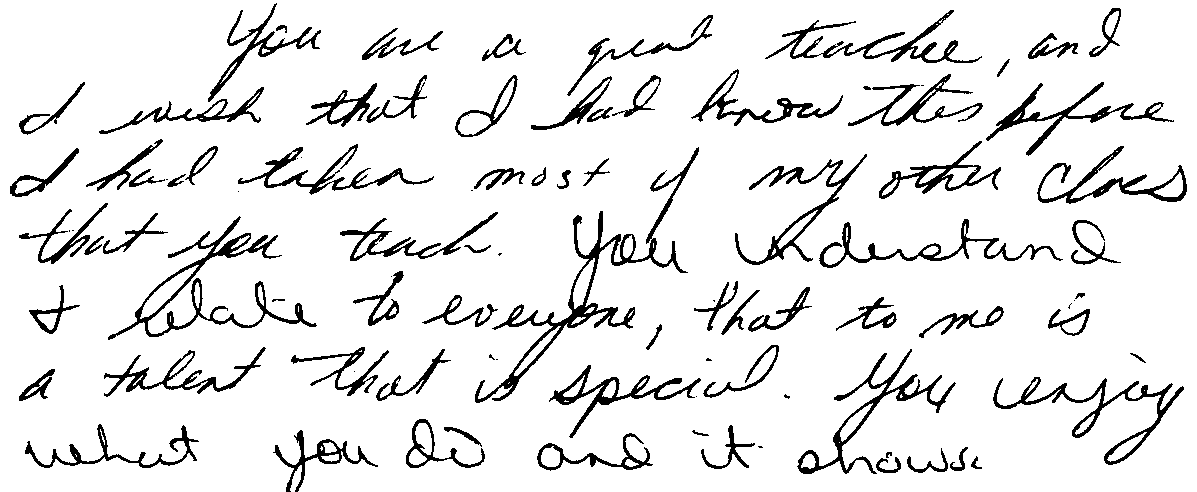 You are a great teacher, and
I wish that I had know this before
I had taken most of my other class
that you teach. You understand
+ relate to everyone, that to me is
a talent that is special. You enjoy
what you do and it shows.